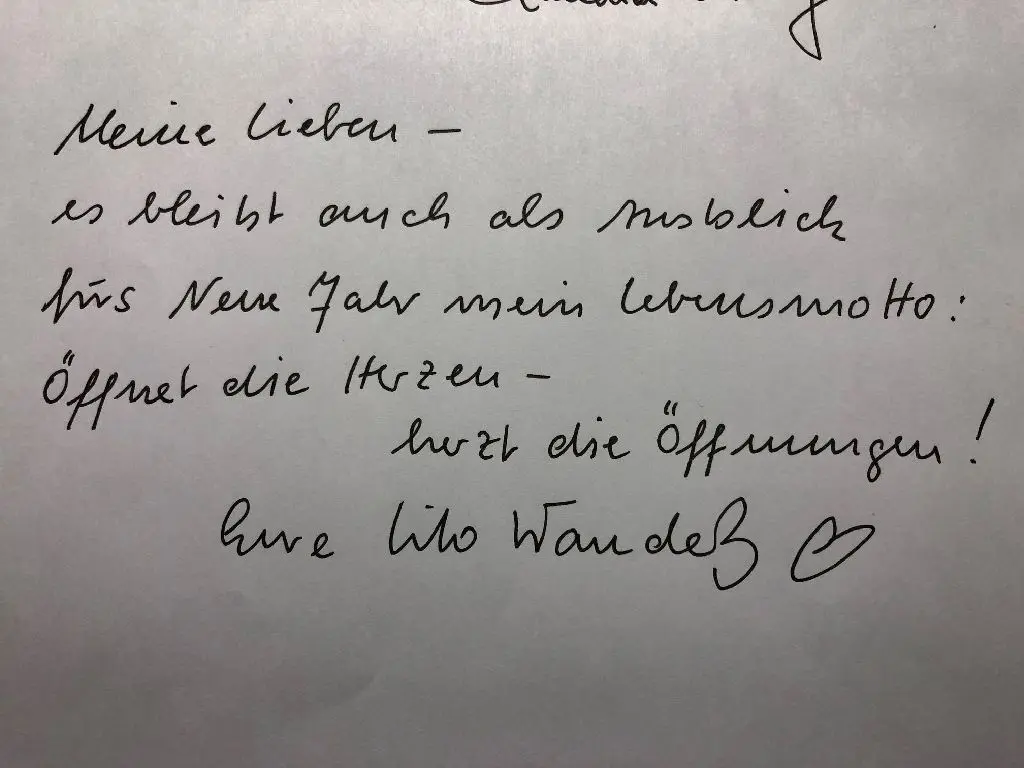 Meine Lieben –
es bleibt auch als Ausblick
fürs Neue Jahr mein Lebensmotto:
Öffnet die Herzen –
herzt die Öffnungen!
Eure Lilo Wanders